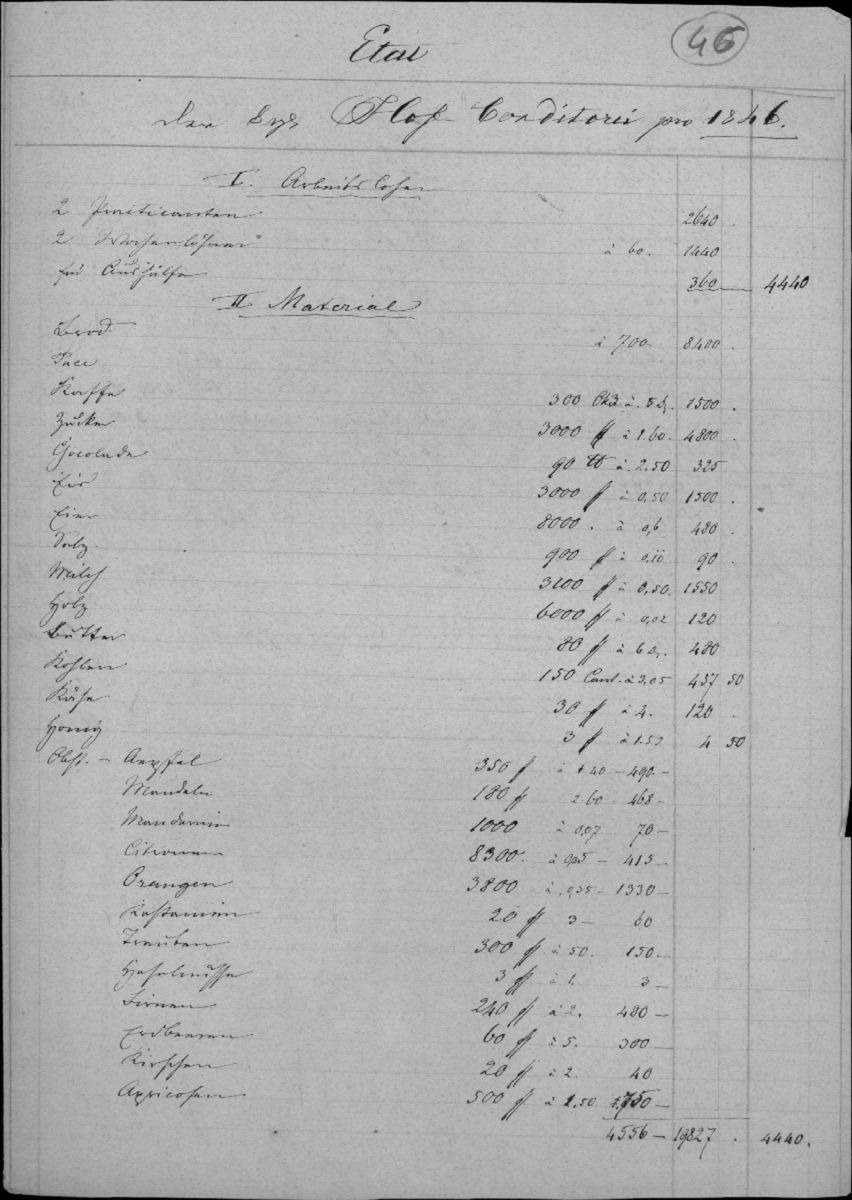 46
Etat
der Kgl. Hof-Conditorei pro 1846.
I. Arbeitslohn
2 Practicanten 2640 .
2 Wochenlöhner à 60. 1440
für Aushülfe 360 4440
II Material
Brod à 700 8400 .
Kaffe 300 Oka à 5 D. 1500 .
Zucker 3000 ff à 1.60. 4800 .
Chocolade 90 tt à 2.50 325
Eis 3000 ff à 0,50 1500 .
Eier 8000 . à 0,6 480 .
Salz 900 ff à 0.10 90 .
Milch 3100 ff à 0,50. 1550
Holz 6000 ff à 0,02 120
Butter 80 ff à 6 D. 480
Kohlen 150 Cant. à 3,05 457 50
Käse 30 ff à 4. 120 .
Honig 3 ff à 1.50 4 50
Obst. - Aepfel 350 ff à 1 40 - 490 -
Mandeln 180 ff 2 60 - 468 -
Mandarinen 1000 à 0,07 70 -
Citronen 8300. à 0,05 - 415 -
Orangen 3800 à 0,35 - 1330 -
Kastanien 20 ff 3 - 60
Trauben 300 ff à 50. 150. -
Haselnüsse 3 ff à 1. 3 -
Birnen 240 ff à 2. 480 -
Erdbeeren 60 ff à 5. 300 -
Kirschen 20 ff à 2. 40
Apricosen 500 ff à 1.50 750 -
4556 - 19827 . 4440.